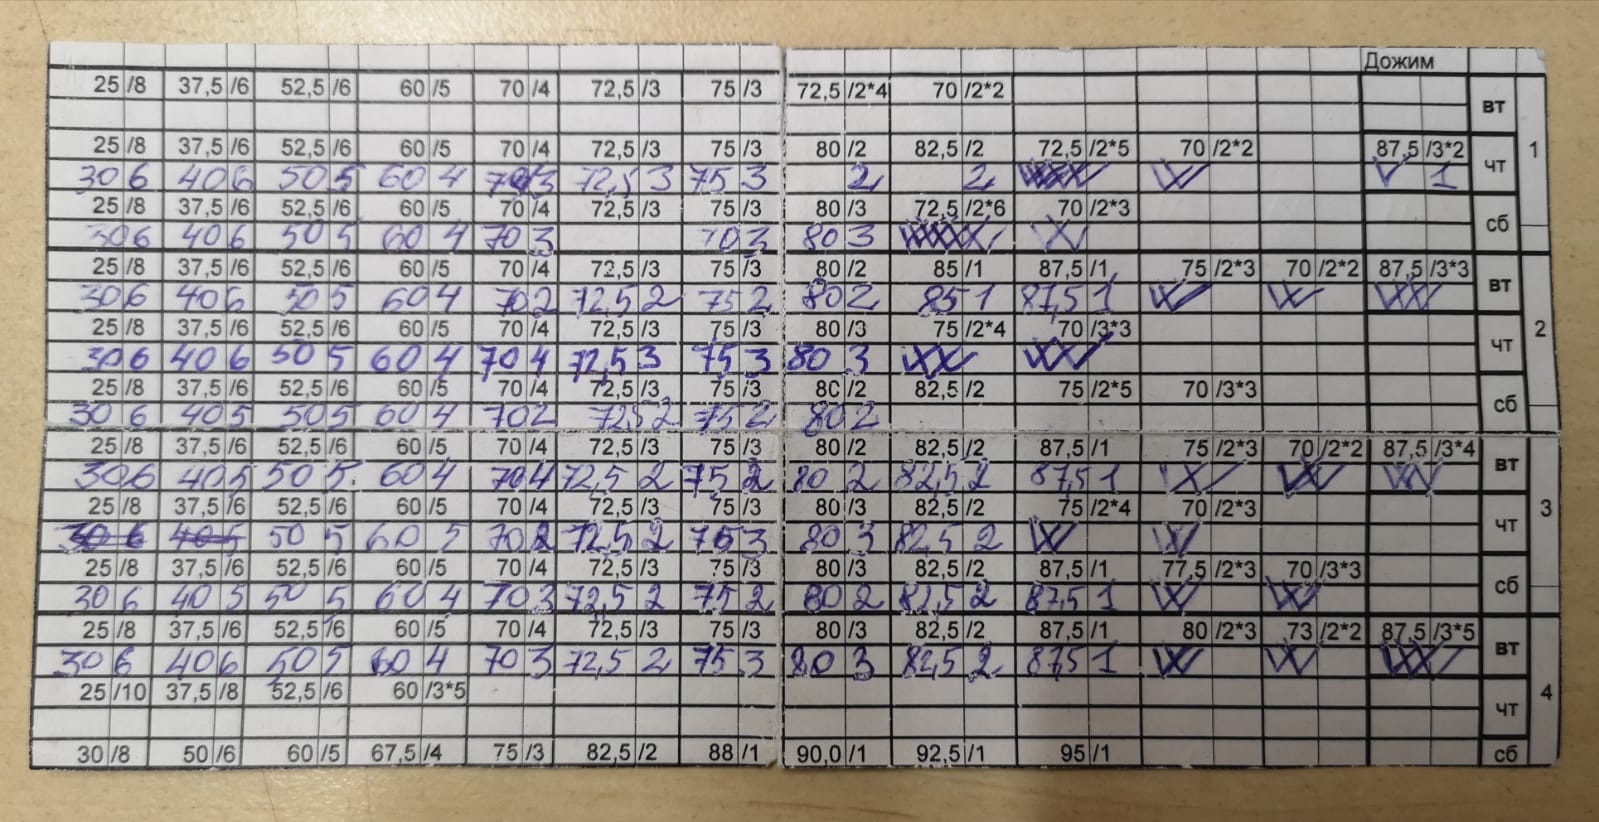 Дожим
25/8 37,5/6 52,5/6 60/5 70/4 72,5/3 75/3 72,5/2*4 70/2*2 вт 1
25/8 37,5/6 52,5/6 60/5 70/4 72,5/3 75/3 80/2 82,5/2 72,5/2*5 70/2*2 87,5/3*2 чт
30 6 40 6 50 5 60 4 70 3 72,5 3 75 3 2 2 1
25/8 37,5/6 52,5/6 60/5 70/4 72,5/3 75/3 80/3 72,5/2*6 70/2*3 сб
30 6 40 6 50 5 60 4 70 3 70 3 80 3
25/8 37,5/6 52,5/6 60/5 70/4 72,5/3 75/3 80/2 85/1 87,5/1 75/2*3 70/2*2 87,5/3*3 вт 2
30 6 40 6 50 5 60 4 70 2 72,5 2 75 2 80 2 85 1 87,5 1
25/8 37,5/6 52,5/6 60/5 70/4 72,5/3 75/3 80/3 75/2*4 70/3*3 чт
30 6 40 6 50 5 60 4 70 4 72,5 3 75 3 80 3
25/8 37,5/6 52,5/6 60/5 70/4 72,5/3 75/3 80/2 82,5/2 75/2*5 70/3*3 сб
30 6 40 5 50 5 60 4 70 2 72,5 2 75 2 80 2
25/8 37,5/6 52,5/6 60/5 70/4 72,5/3 75/3 80/2 82,5/2 87,5/1 75/2*3 70/2*2 87,5/3*4 вт 3
30 6 40 5 50 5 60 4 70 4 72,5 2 75 2 80 2 82,5 2 87,5 1
25/8 37,5/6 52,5/6 60/5 70/4 72,5/3 75/3 80/3 82,5/2 75/2*4 70/2*3 чт
30 6 40 5 50 5 60 5 70 2 72,5 2 75 3 80 3 82,5 2
25/8 37,5/6 52,5/6 60/5 70/4 72,5/3 75/3 80/3 82,5/2 87,5/1 77,5/2*3 70/3*3 сб
30 6 40 5 50 5 60 4 70 3 72,5 2 75 2 80 2 82,5 2 87,5 1
25/8 37,5/6 52,5/6 60/5 70/4 72,5/3 75/3 80/3 82,5/2 87,5/1 80/2*3 73/2*2 87,5/3*5 вт 4
30 6 40 6 50 5 60 4 70 3 72,5 2 75 3 80 3 82,5 2 87,5 1
25/10 37,5/8 52,5/6 60/3*5 чт
30/8 50/6 60/5 67,5/4 75/3 82,5/2 88/1 90,0/1 92,5/1 95/1 сб